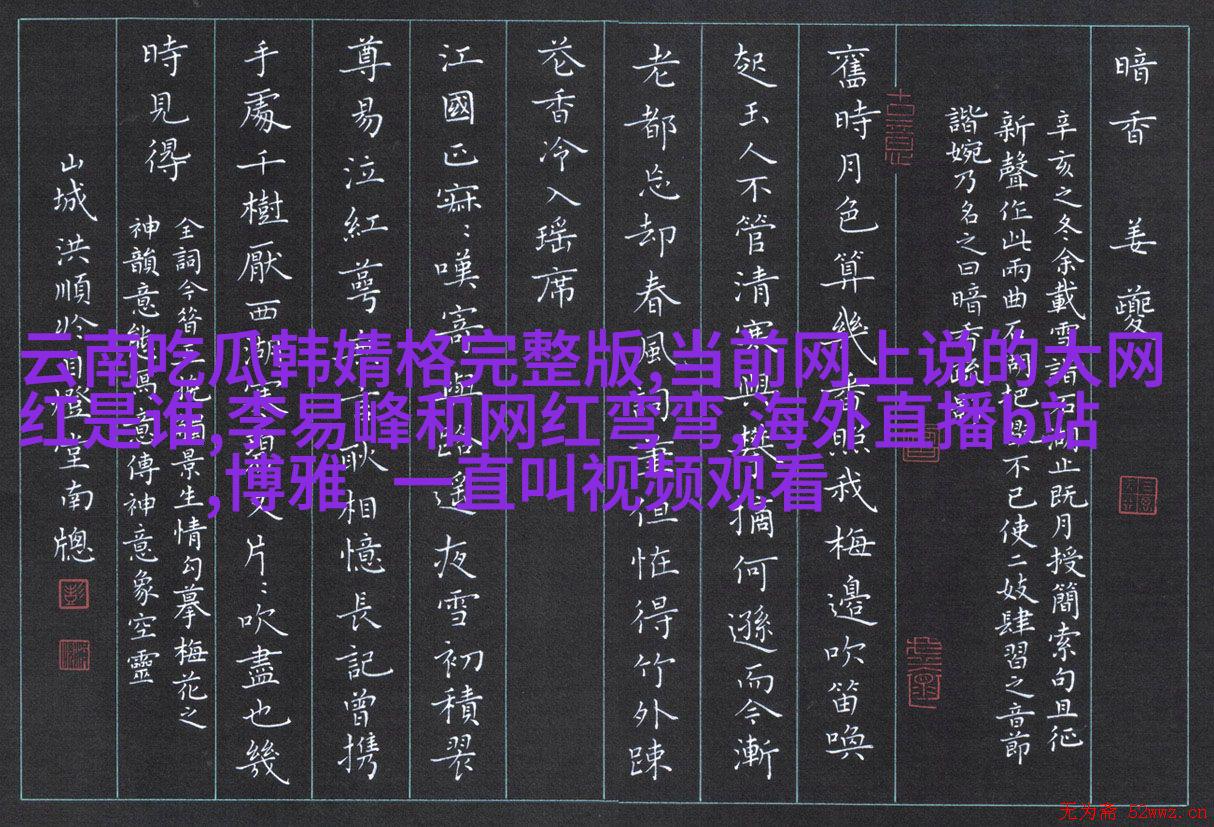 暗香 姜夔
辛亥之冬余載雪詣石湖止既月授簡索句且征
新聲作此兩曲石湖把玩不已使二妓肆習之音節
諧婉乃名之曰暗香疏影
古意
舊時月色算幾番照我梅邊吹笛喚
起玉人不管清寒與攀摘何遜而今漸
老都忘却春風詞筆但恠得竹外踈
花香冷入瑶席
江國正寂:嘆寄與路遥夜雪初積翠
尊易泣紅萼無言耿相憶長記曾携
手處千樹壓西湖寒碧又片:吹盡也幾
時見得
全詞今昔 景生情勾摹梅花之
神韻意態 寓意傳神意象空靈
山城洪順 燈堂南牕
云南吃瓜韩婧格完整版,当前网上说的大网
红是谁,李易峰和网红弯弯,海外直播b站
,博雅 一直叫视频观看
无为斋 52wwz.cn